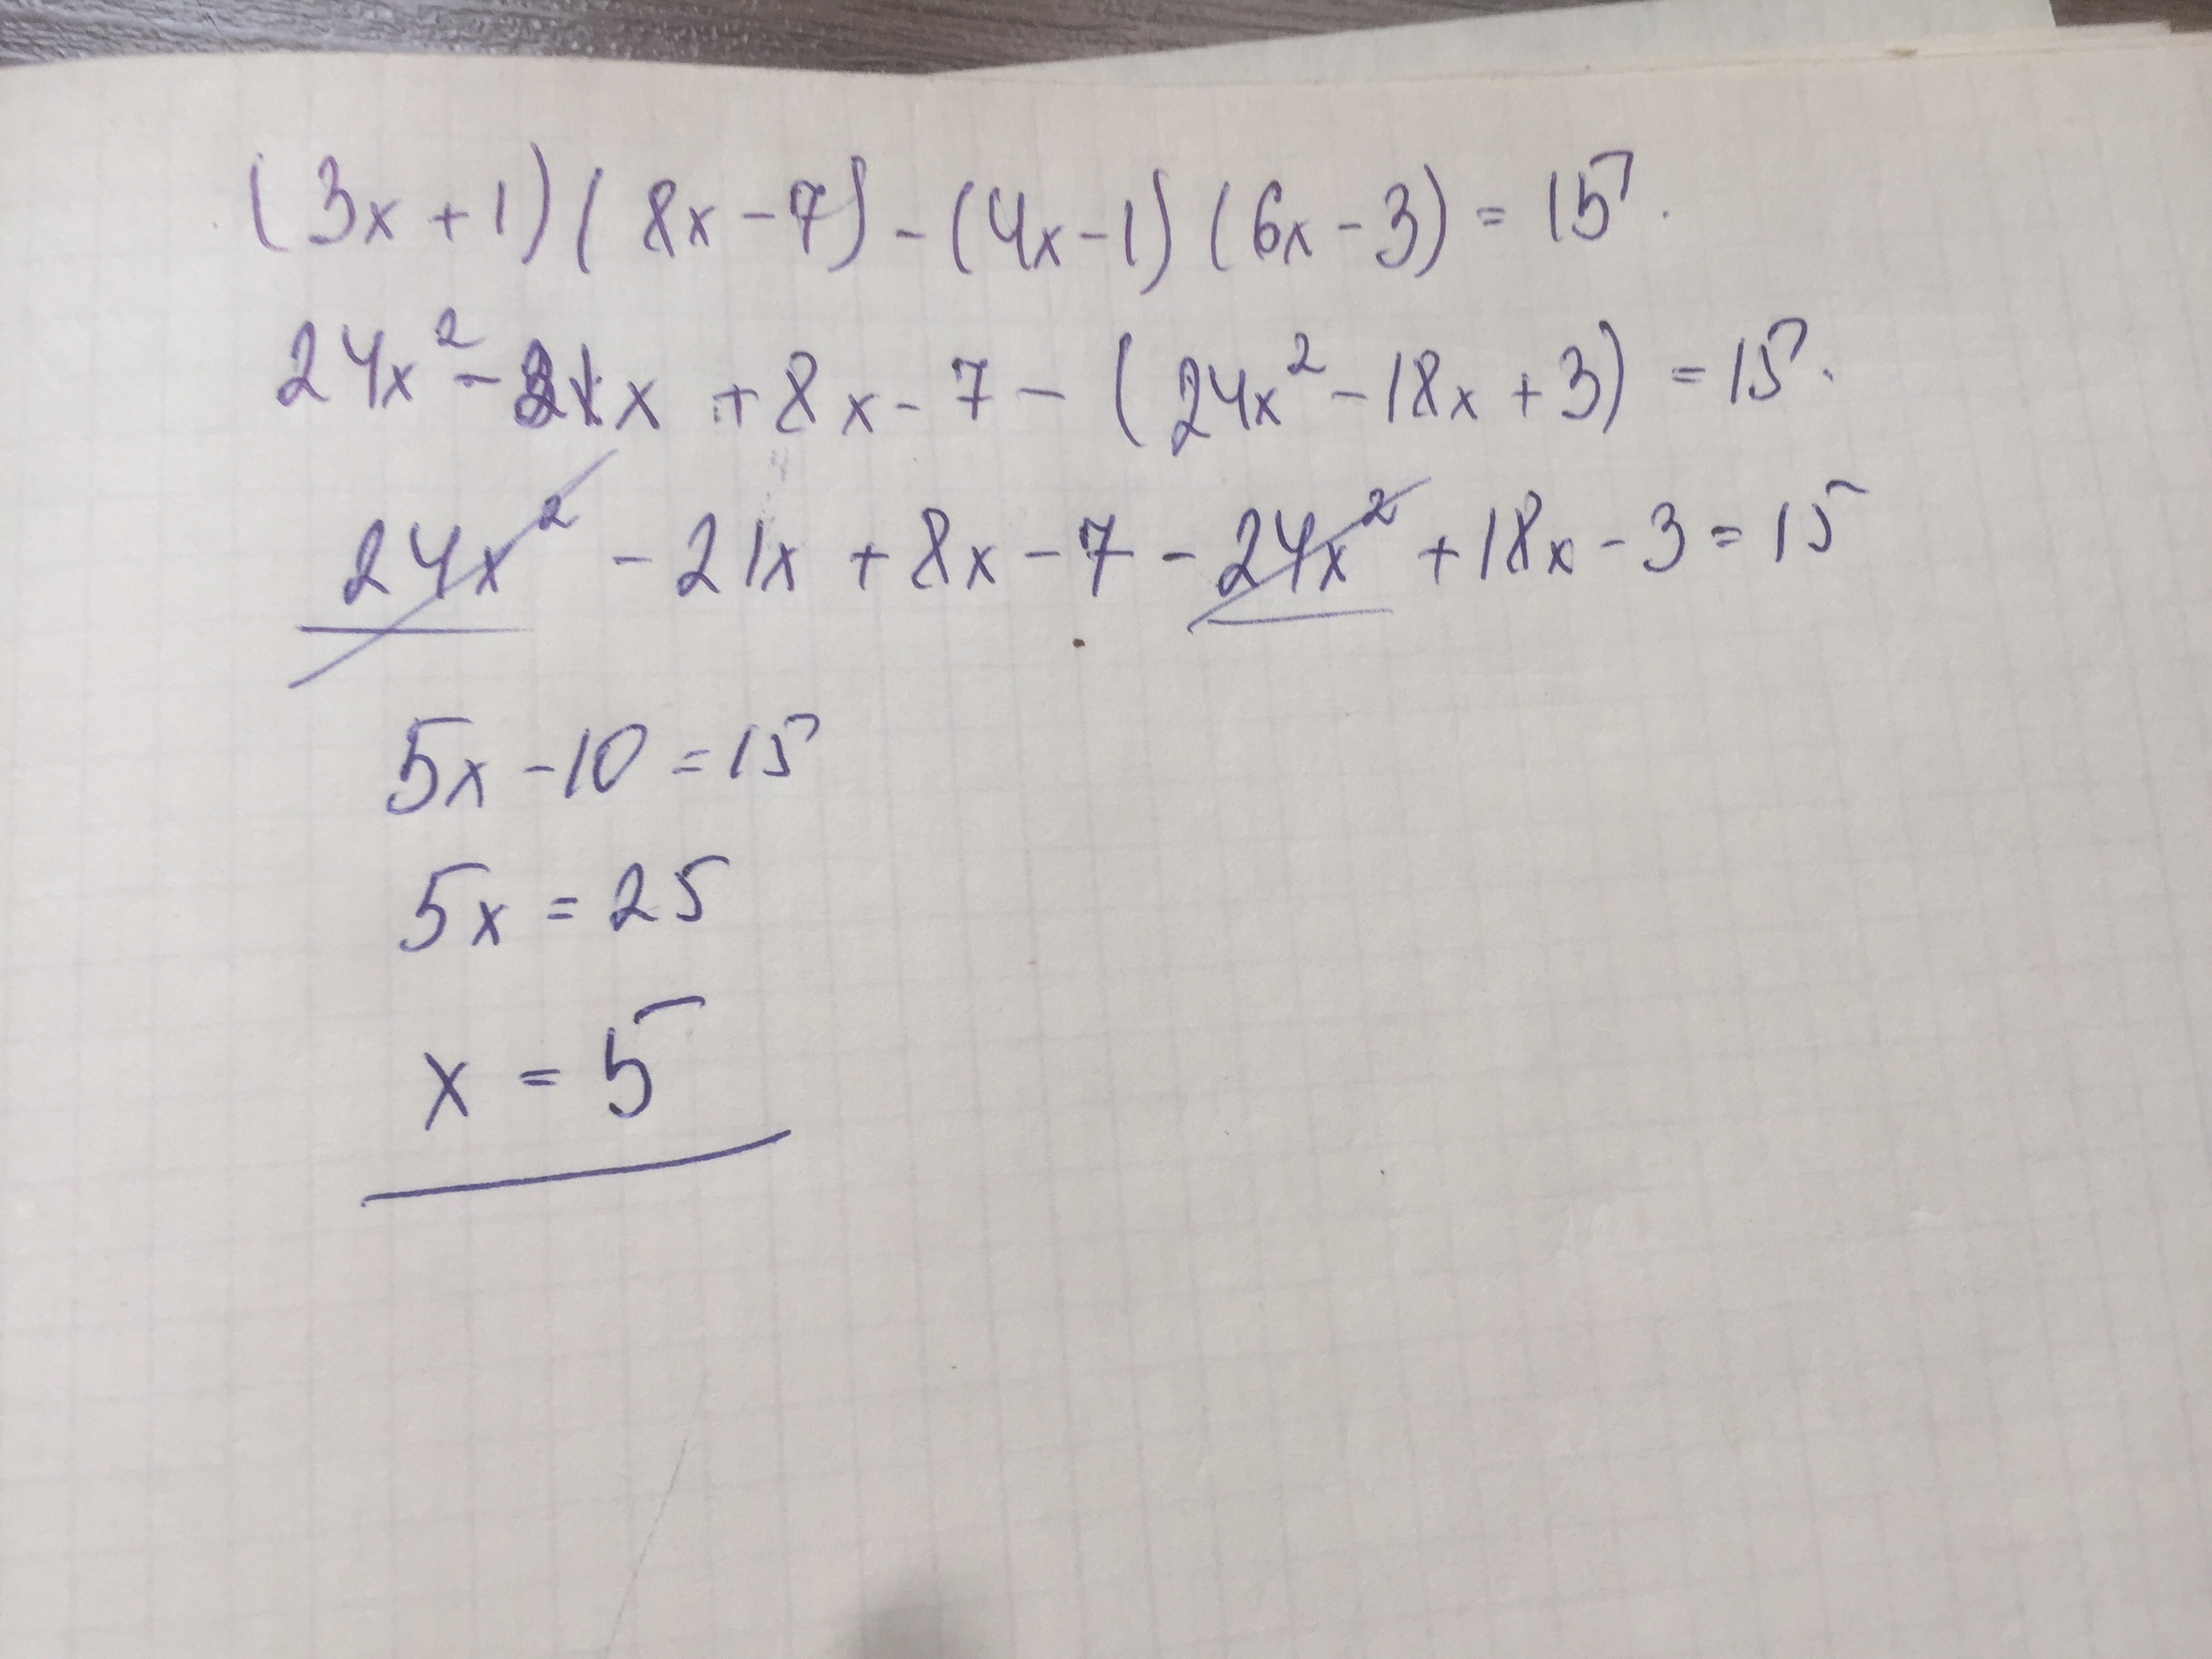 (3x + 1)(8x - 7) - (4x - 1)(6x - 3) = 15.
24x² - 21x + 8x - 7 - (24x² - 18x + 3) = 15.
24x² - 21x + 8x - 7 - 24x² + 18x - 3 = 15
5x - 10 = 15
5x = 25
x = 5